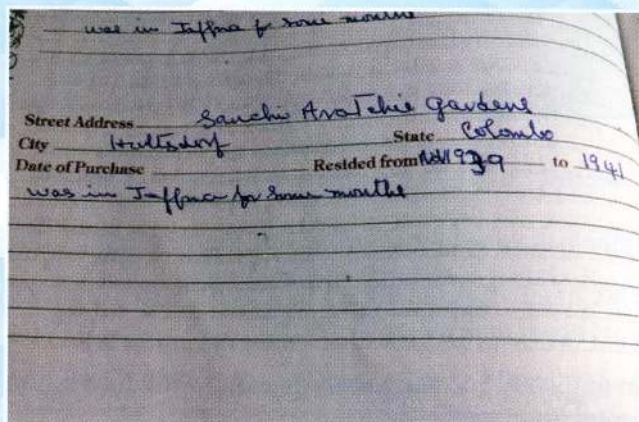 was in Jaffna for some months
Street Address Sanchi Aratchie Gardens
City Hultsdorf State Colombo
Date of Purchase Resided from 1939 to 1941
was in Jaffna for some months